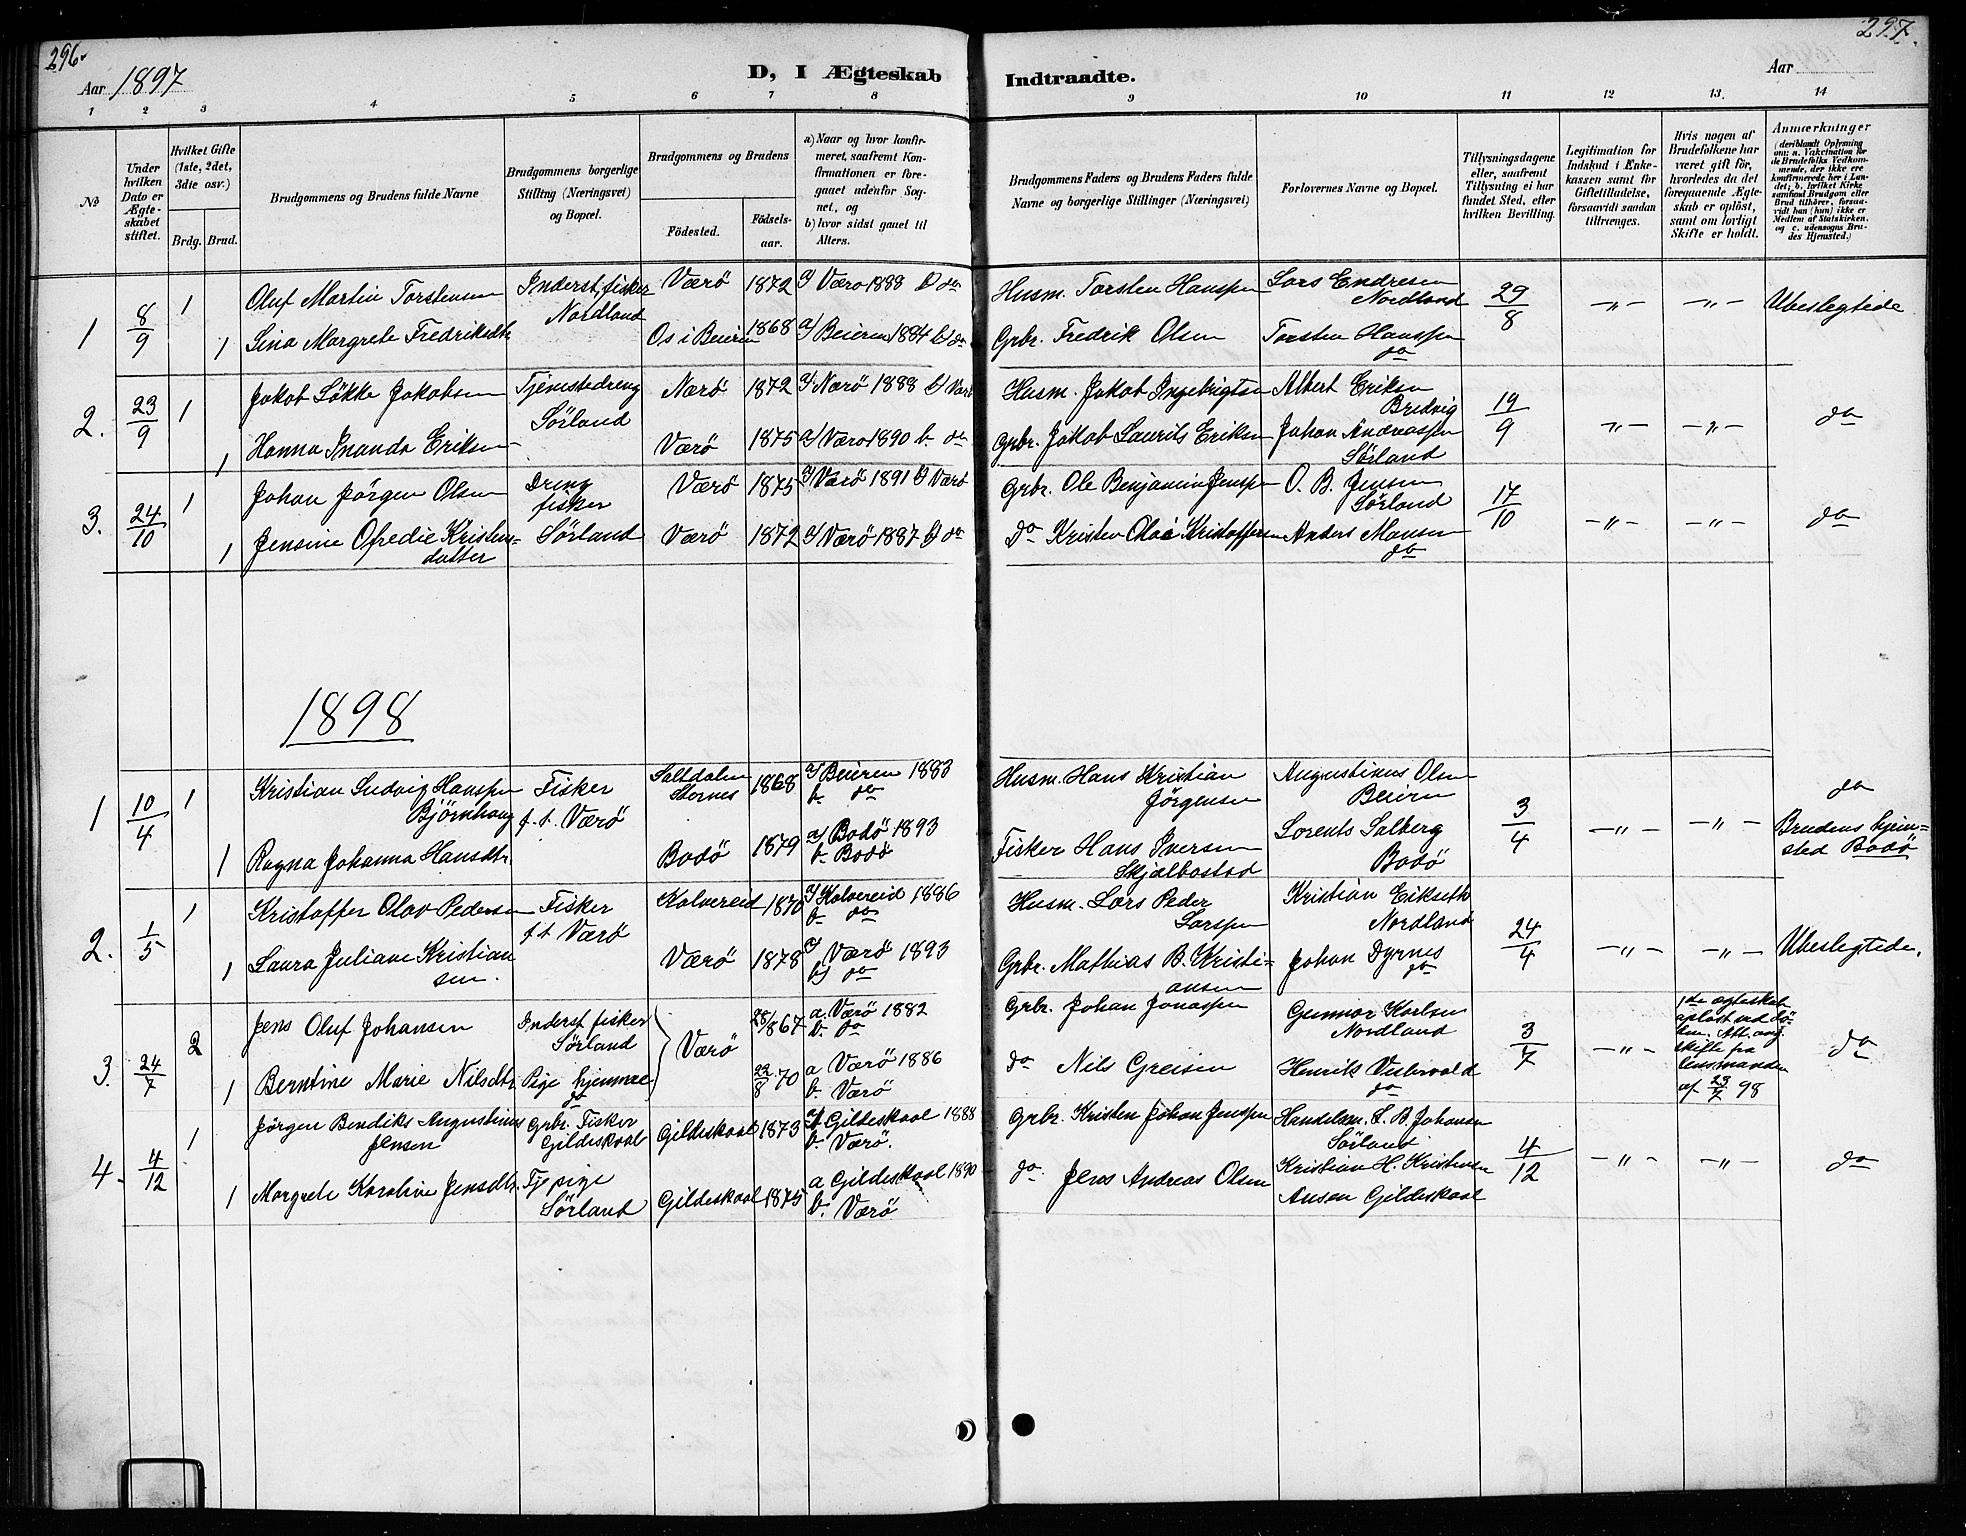 296.
297.
Aar 1897
D, I Ægteskab Indtraadte.
Aar
1 2 3 4 5 6 7 8 9 10 11 12 13. 14
No
Under hvilken Dato er Ægteskabet stiftet.
Hvilket Gifte (1ste, 2det, 3die osv.)
Brdg. Brud.
Brudgommens og Brudens fulde Navne
Brudgommens borgerlige Stilling (Næringsvei) og Bopæl.
Brudgommens og Brudens
Fødested.
Fødsels-aar.
a) Naar og hvor konfirmeret, saafremt Konfirmationen er foregaaet udenfor Sognet, og
b) hvor sidst gaaet til Alters.
Brudgommens Faders og Brudens Faders fulde Navne og borgerlige Stillinger (Næringsvei)
Forlovernes Navne og Bopæl.
Tillysningsdagene eller, saafremt Tillysning ei har fundet Sted, efter hvilken Bevilling.
Legitimation for Indskud i Enkekassen samt for Giftetilladelse, forsaavidt saadan tiltrænges.
Hvis nogen af Brudefolkene har været gift før, hvorledes da det foregaaende Ægteskab er opløst, samt om lovligt Skifte er holdt.
Anmærkninger
(deriblandt Oplysning om: a. Vakcination for de Brudefolks Vedkommende, der ikke ere konfirmerede her i Landet; b. hvilket Kirkesamfund Brudgom eller Brud tilhører, forsaavidt han (hun) ikke er Medlem af Statskirken. og c. udensogns Brudes Hjemsted.)
1 8/9 1 Oluf Martin Torstensen Inderst, fisker Nordland Værø 1872 a) Værø 1888 b) do Husm. Torsten Hanssen Lars Endresen Nordland 29/8 -„- -„- Ubeslegtede
1 Sina Margrete Fredriksdtr. Os i Beieren 1868 a) Beieren 1884 b) do Grbr. Fredrik Olsen Torsten Hanssen do
2. 23/9 1 Jakob Løkke Jakobsen Tjenestedreng Sørland Nærø 1872 a) Nærø 1888 b) Værø Husm. Jakob Ingebrigtsen Albert Eriksen Bredvig 19/9 -„- -„- do
1 Hanna Amanda Eriksen Værø 1875 a) Værø 1890 b. do Grbr. Jakob Laurits Eriksen Johan Andreassen Sørland
3. 24/10 1 Johan Jørgen Olsen Dreng fisker Sørland Værø 1875 a) Værø 1891 b) Værø Grbr. Ole Benjamin Jenssen O. B. Jensen Sørland 17/10 -„- -„- do
1 Jensine Ofredie Kristensdatter Værø 1872 a) Værø 1887 b) do do Kristen Olai Kristoffersen Anders Monsen do
1898
1 10/4 1 Kristian Ludvig Hanssen Bjørnhaug Fisker f. t. Værø Saltdalen Stornes 1868 a) Beieren 1883 b. do Husm. Hans Kristian Jørgensen Augustinus Olsen Beiern 3/4 -„- -„- do
1 Ragna Johanna Hansdtr. Bodø 1879 a) Bodø 1893 b. Bodø Fisker Hans Iversen Skjælbostad Lorents Solberg Bodø Brudens hjemsted Bodø
2. 1/5 1 Kristoffer Olav Pedersen Fisker f. t Værø Kolvereid 1870 a) Kolvereid 1886 b. do Husm. Lars Peder Larssen Kristian Eikseth Nordland 24/4 -„- -„- Ubeslegtede.
1 Laura Juliane Kristiansen. Værø 1878 a) Værø 1893 b) do Grbr. Mathias B. Kristiansen Johan Dyrnes do
3. 24/7 2 Jens Oluf Johansen Inderst fisker Sørland Værø 28/ 867 a. Værø 1882 b. do Grbr. Johan Jonassen Gunnar Karlsen Nordland 3/7 -„- 1ste ægteskab opløst ved døden. Att. ang. skifte fra lensmanden af 23/7 98 do
1 Berntine Marie Nilsdtr. Pige hjemme do 22/8 70 a Værø 1886 b. Værø do Nils Greisen Henrik do
4. 4/12 1 Jørgen Bendiks Augustinus Jensen Grbr. Fisker Gildeskaal Gildeskaal 1873 a) Gildeskaal 1888 b. Værø. Grbr. Kristen Johan Jenssen Handelsm. L. B. Johansen Sørland 4/12 -„- -„- do
1 Margrete Karoline Jensdtr. Tj pige Sørland Gildeskaal 1875 a Gildeskaal 1890 b. Værø do. Jens Andreas Olsen Kristian H. Kristensen Ansen Gildeskaal